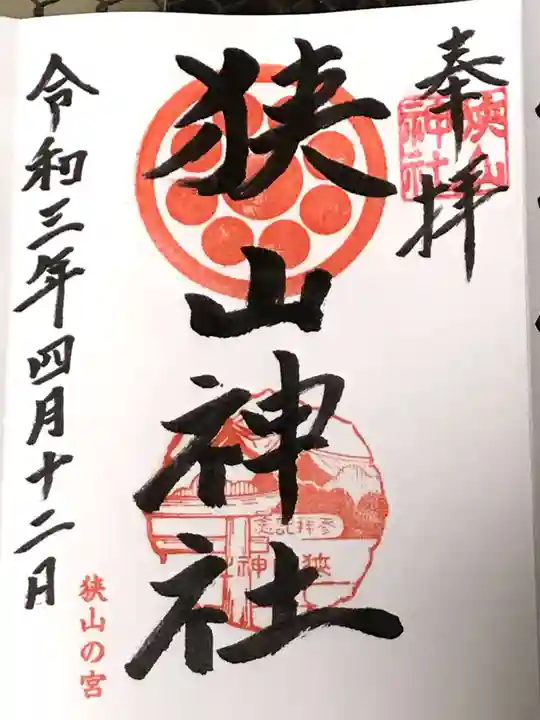 奉拝
狭山神社
狭山神社
参拝記念
狭山神社
令和三年四月十二月
狭山の宮